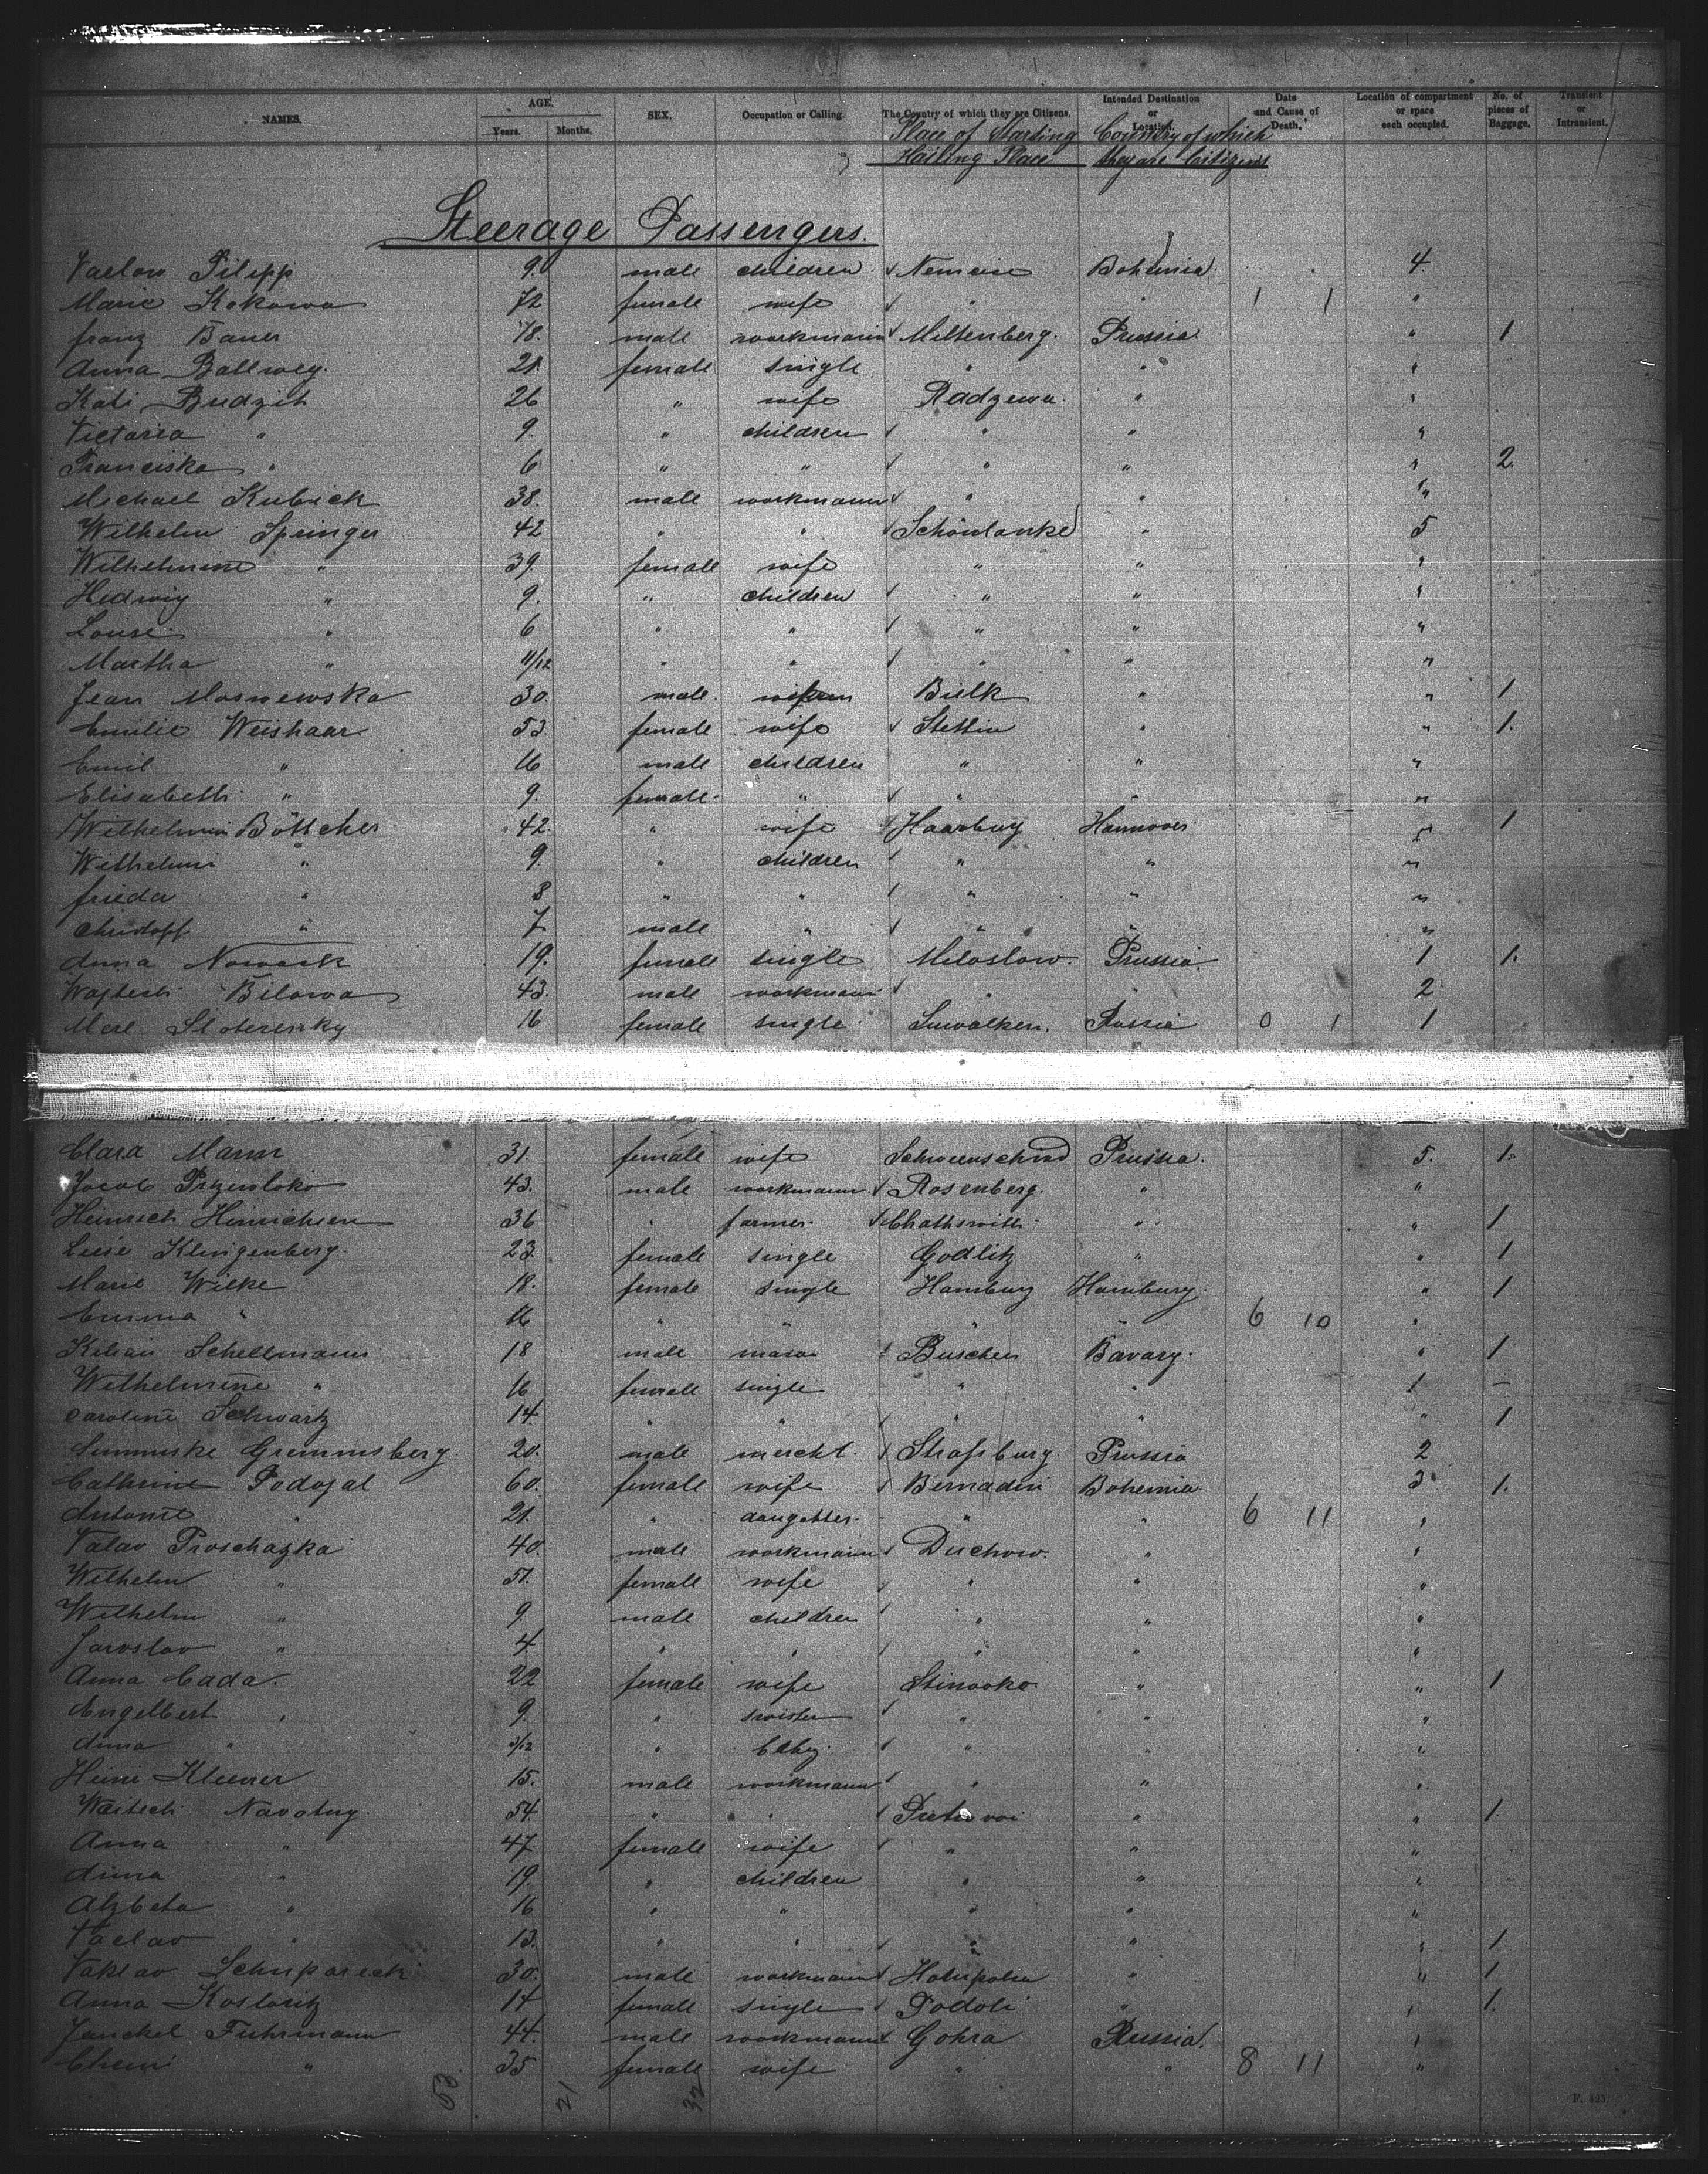 NAMES. AGE. Years. Months. SEX. Occupation or Calling. The Country of which they are Citizens. Intended Destination or Location. Date and Cause of Death. Location of compartment or space each occupied. No. of pieces of Baggage. Transient or Intransient.
Place of Starting Country of which
Hailing Place they are Citizens
Steerage Passengers.
Vaclav Filipp 9. male children Bohemia. 4.
Marie Kokowa 72 female wife " " 1 1 "
franz Bauer 18. male workmann Miltenberg. Prussia " 1
Anna Ballweg. 21. female single " " "
Kati Budzik 26 " wife Radzewa " "
Victoria " 9. " children " " "
Franciska " 6 " " " " " 2.
Michael Kubick 38. male workmann " " "
Wilhelm Springer 42 " " Schönlanke " 5
Wilhelmine " 39. female wife " " "
Hedwig " 9. " children " " "
Louise " 6 " " " " "
Martha " 11/12 " " " " "
Jean 30. male Bielk " " 1
Emilie Weishaar 53. female wife Stettin " " 1.
Emil " 16 male children " " "
Elisabeth " 9. female " " " "
Wilhelmin Böttcher 42. " wife Haarburg Hannover 5 1
Wilhelmi " 9. " children " " "
frieda " 8 " " " " "
christoff " 7 male " " " "
Anna Nowack 19. female single Miloslaw. Prussia. 1 1.
Wojtech Bilowa 43. male workmann " " 2
16 female single Suwalken. Russia 0 1 1
Clara Mann 31. female wife Prussia. 5. 1.
Jacob 43. male workmann Rosenberg. " "
Heinrich Hinrichsen 36 " farmer " " 1
Liese Klingenberg. 23. female single Godlitz " " 1
Marie Wilke 18. female single Hamburg Hamburg. " 1
Emma " 16 " " " " 6 10 "
Kilian Schellmann 18 male Büschen Bavary. " 1
Wilhelmine " 16 female single " " 1 –
Caroline Schwartz 14. " " " " " 1
Gremmsberg. 20. male mercht. Strafsburg Prussia 2
Cathrine Podojal 60. female wife Bernadin Bohemia 3 1.
Antonie " 21. " daugther " " 6 11 "
Valav Proschazka 40. male workmann Duchow. " "
Wilhelm " 51. female wife " " "
Wilhelm " 9. male children " " "
Jaroslav " 4 " " " " "
Anna Cada. 22 female wife " " 1
Engelbert " 9. " " " "
Anna " " " " "
15. male workmann " " "
Waitech Navotny. 54. " " " " 1.
Anna " 47 female wife " " "
Anna " 19. " children " " "
Alzbeta " 16 " " " " "
Vaclav " 13. " " " " " 1
Vaklav 30. male workmann " " 1
Anna 14 female single Podoli " " 1.
Janckel Fuhrmann 44. male workmann Gohra Russia. "
" 35 female wife " " 8 11 "
53. 21 32
F. 425.